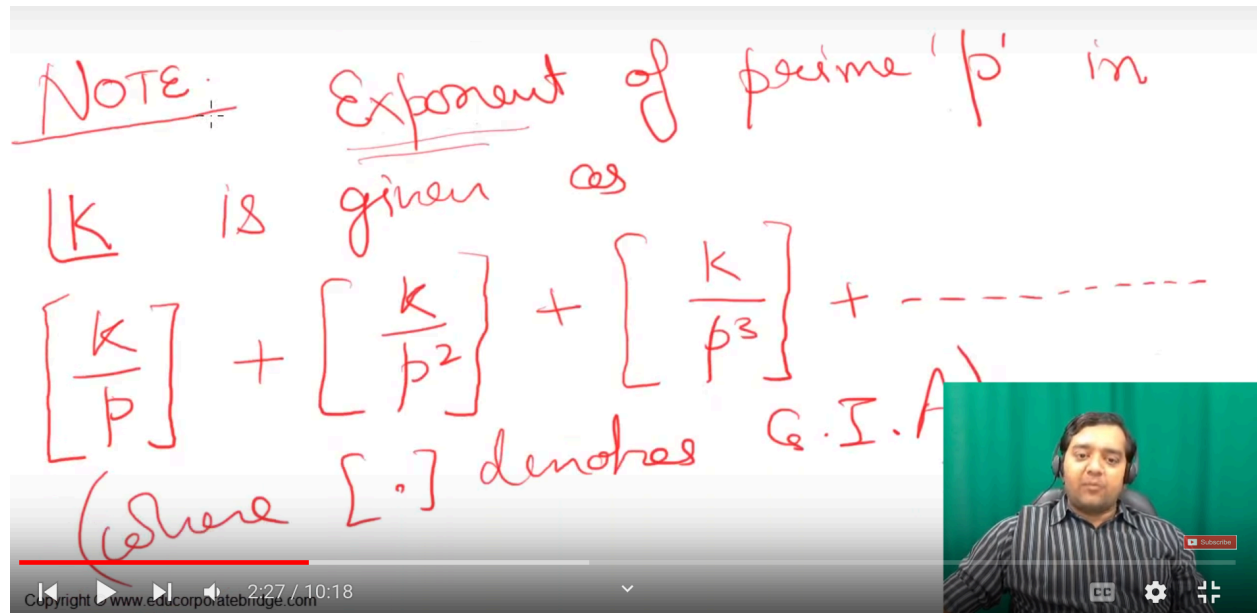 NOTE: Exponent of prime 'p' in
⌊K is given as
[K/p] + [K/p²] + [K/p³] + ----------
(where [.] denotes G.I.F)
Subscribe
2:27 / 10:18
CC
Copyright © www.educorporatebridge.com